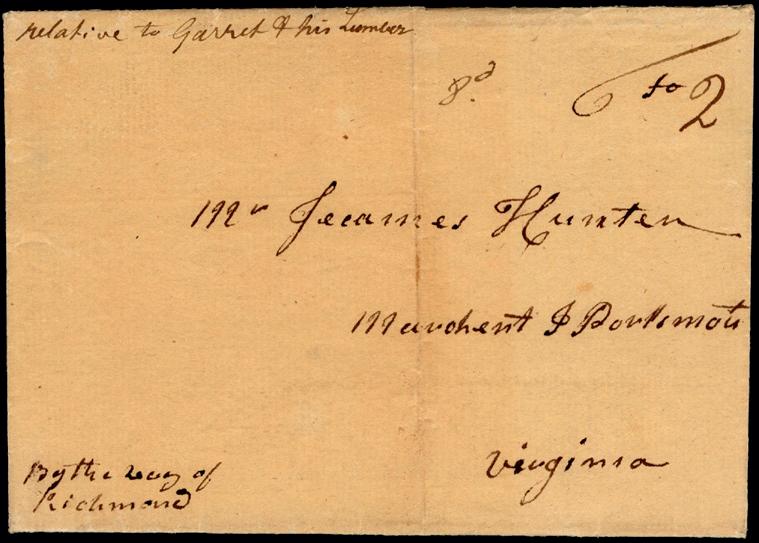 relative to Garret & his Lumber
8d
to 2
Mr Jecames Hunter
Marchent J Portsmoti
Virginia
By the way of
Richmond